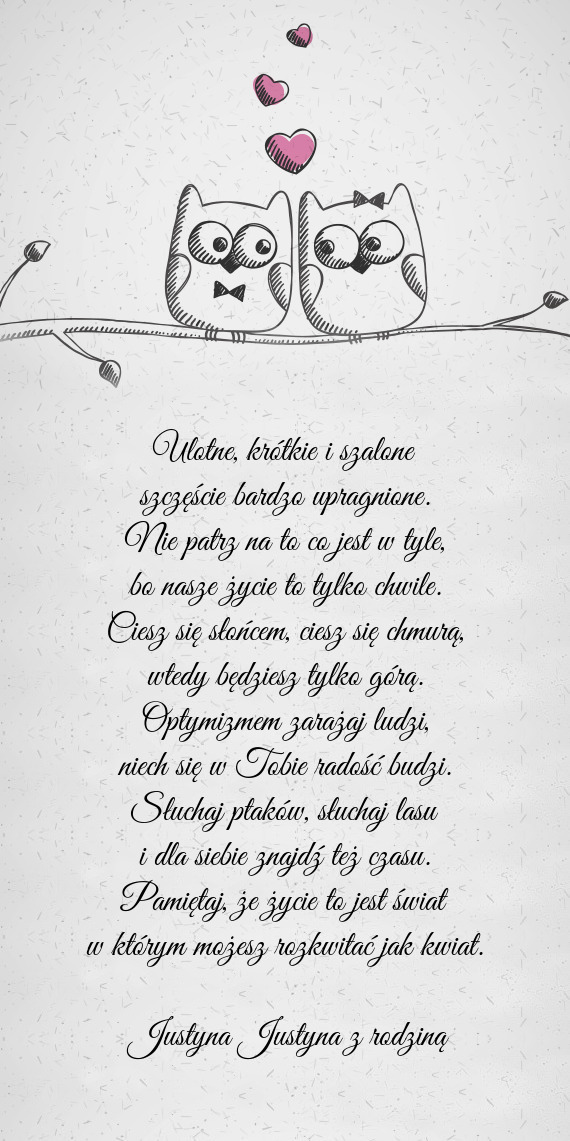 Ulotne, krótkie i szalone
szczęście bardzo upragnione.
Nie patrz na to co jest w tyle,
bo nasze życie to tylko chwile.
Ciesz się słońcem, ciesz się chmurą,
wtedy będziesz tylko górą.
Optymizmem zarażaj ludzi,
niech się w Tobie radość budzi.
Słuchaj ptaków, słuchaj lasu
i dla siebie znajdź też czasu.
Pamiętaj, że życie to jest świat
w którym możesz rozkwitać jak kwiat.
Justyna Justyna z rodziną